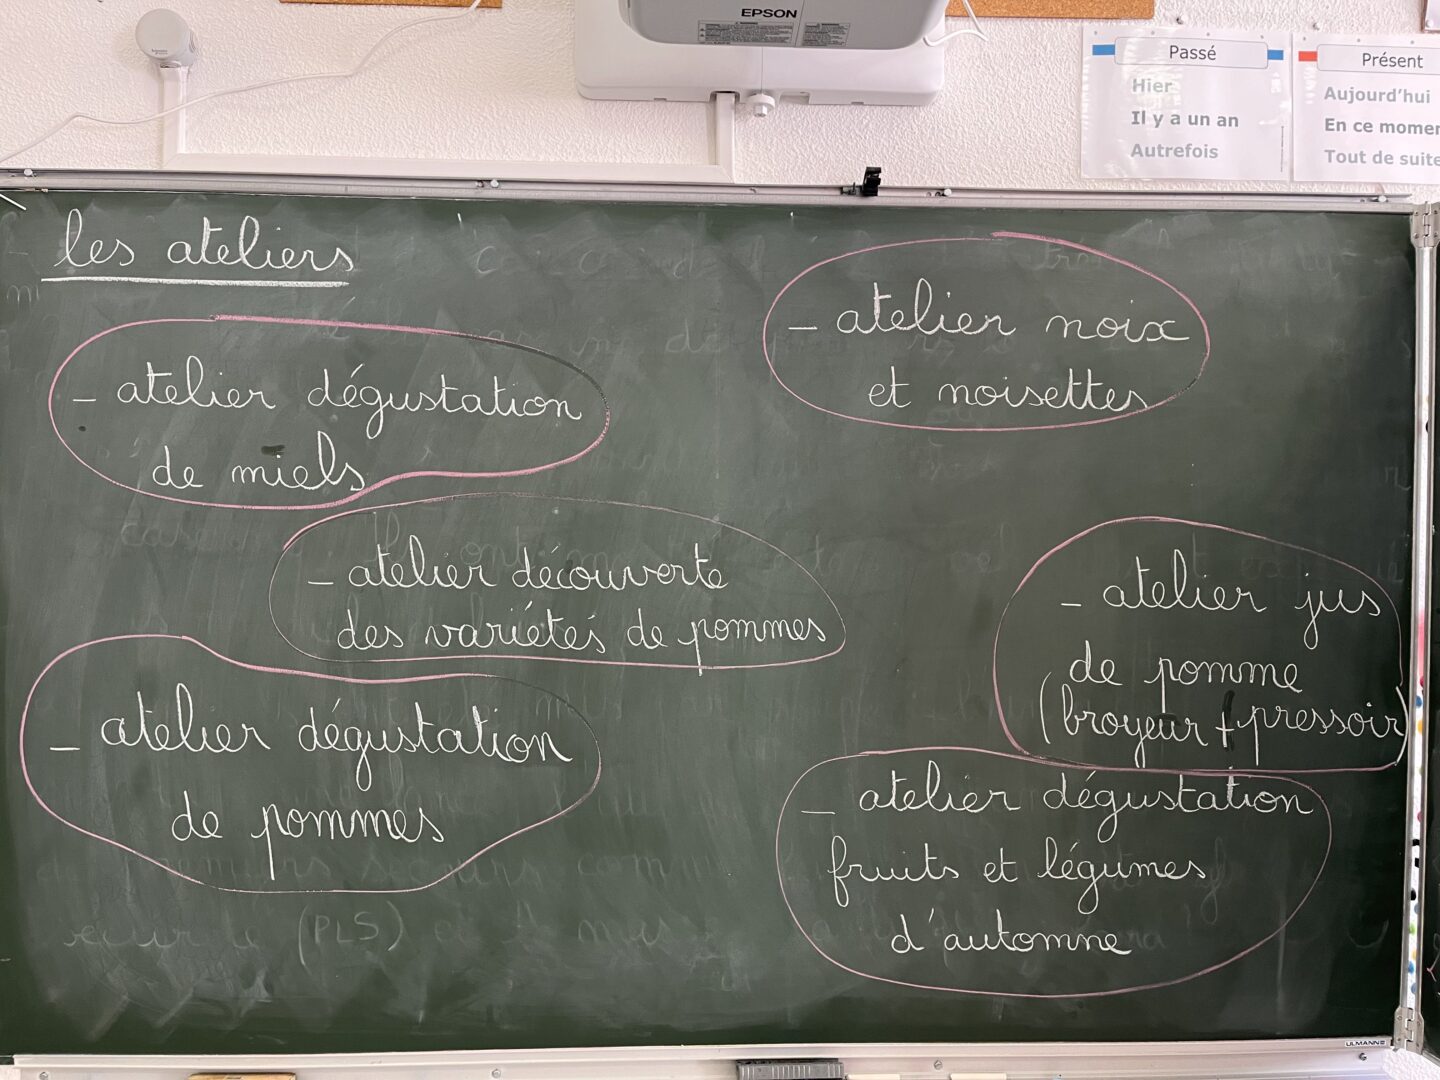 EPSON
Passé
Hier
Il y a un an
Autrefois
Présent
Aujourd'hui
En ce momen
Tout de suite
les ateliers
- atelier dégustation
de miels
- atelier découverte
des variétés de pommes
- atelier dégustation
de pommes
- atelier noix
et noisettes
- atelier jus
de pomme
(broyeur + pressoir)
- atelier dégustation
fruits et légumes
d'automne
(PLS)
ULMANN